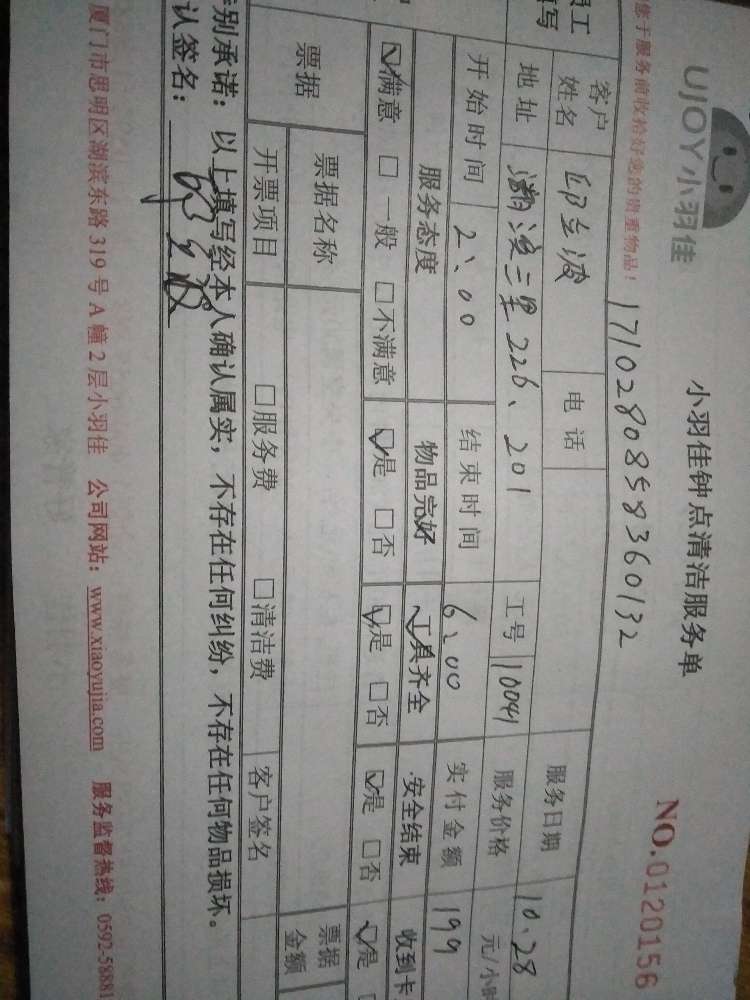 UJOY小羽佳
小羽佳钟点清洁服务单
NO.0120156
您于服务前收拾好您的贵重物品！
1710280858360132
员工
填写
客户姓名
电话
服务日期 10.28
地址 226、201
工号 10041
服务价格 元/小时
开始时间 2:00
结束时间 6:00
实付金额 199
服务态度 物品完好 工具齐全 安全结束 收到卡
☑满意 □一般 □不满意 ☑是 □否 ☑是 □否 ☑是 □否 ☑是
票据 票据名称 票据金额
开票项目 □服务费 □清洁费 客户签名
特别承诺：以上填写经本人确认属实，不存在任何纠纷，不存在任何物品损坏。
认签名：
厦门市思明区湖滨东路319号A幢2层小羽佳 公司网站：www.xiaoyujia.com 服务监督热线：0592-58881